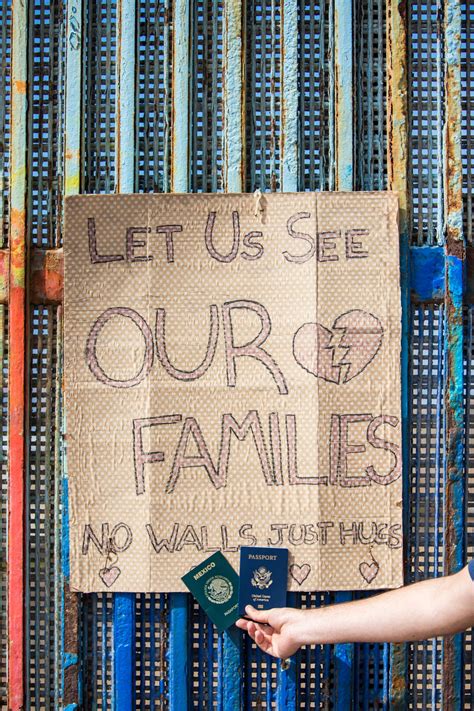 LET US SEE
OUR
FAMILIES
NO WALLS JUST HUGS
MEXICO
PASSPORT
United States
of America